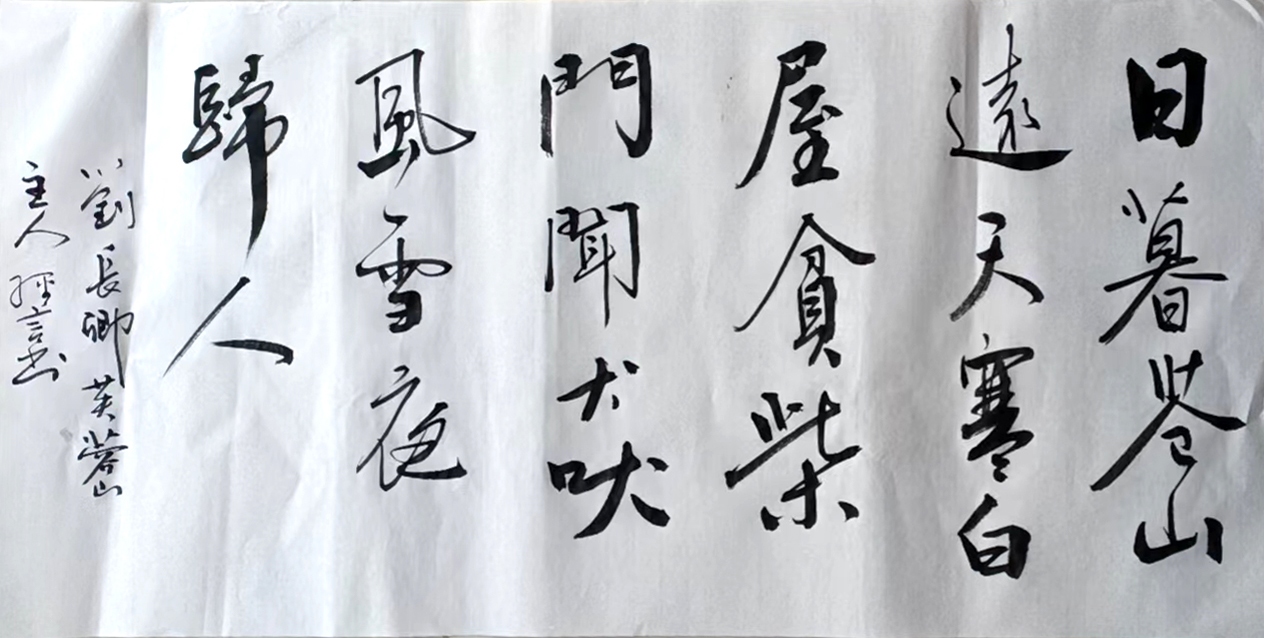 日暮蒼山
遠天寒白
屋貧柴
門聞犬吠
風雪夜
歸人
劉長卿芙蓉山
主人